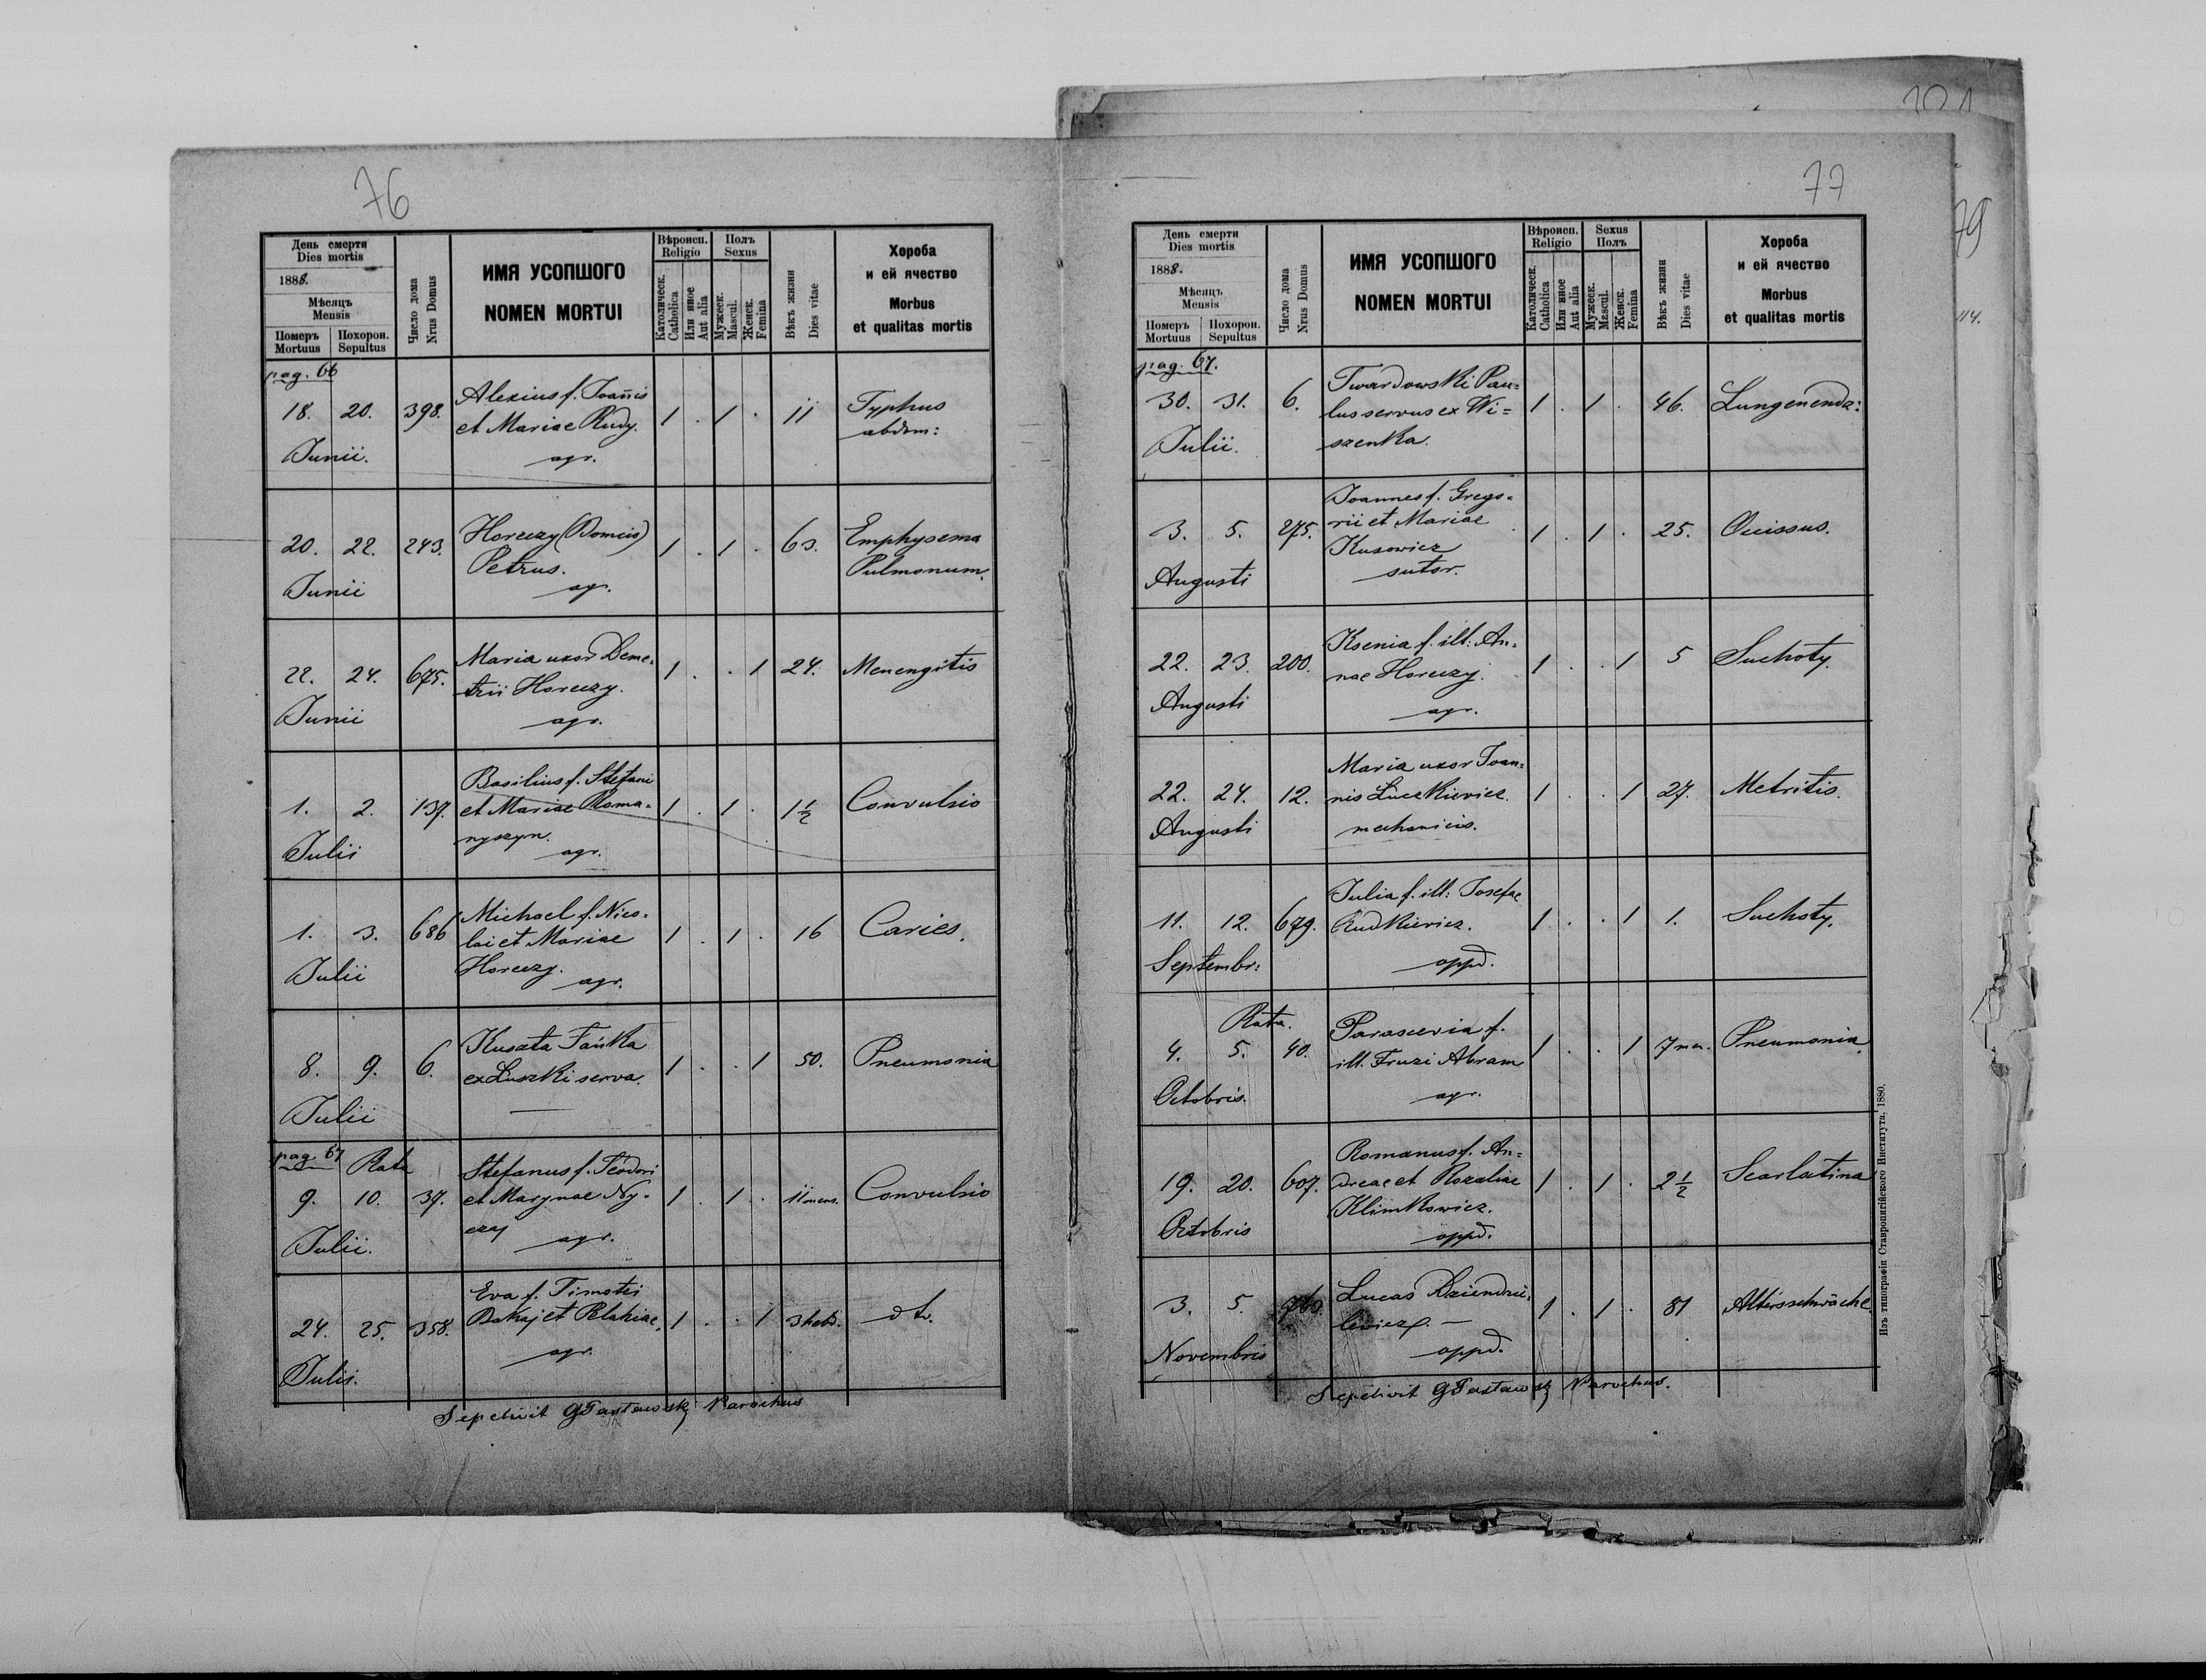 76
День смерти
Dies mortis
1888.
Мѣсяцъ
Mensis
Померъ
Mortuus
Похорон.
Sepultus
Число дома
Nrus Domus
ИМЯ УСОПШОГО
NOMEN MORTUI
Вѣроисп.
Religio
Католическ.
Catholica
Или иное
Aut alia
Полъ
Sexus
Мужеск.
Mascul.
Женск.
Femina
Вѣкъ жизни
Dies vitae
Хороба
и ей ячество
Morbus
et qualitas mortis
pag. 66
18. 20. 398. Alexius f. Joañis 1 . 1 . 11 Typhus
et Mariae Rudy. abdom:
Junii. agr.
20. 22. 243. Horeczy (Domcis) 1 . 1 . 63. Emphysema
Petrus. Pulmonum.
Junii agr.
22. 24. 675. Maria uxor Deme- 1 . . 1 24. Menengitis
trii Horeczy.
Junii agr.
1. 2. 137. Basilius f. Stefani 1 . 1 . 1 1/2 Convulsio
et Mariae Roma-
nyszyn.
Julii agr.
1. 3. 686 Michael f. Nico- 1 . 1 . 16 Caries.
lai et Mariae
Horeczy.
Julii agr.
8. 9. 6. Kuszta Fańka 1 . . 1 50. Pneumonia
ex Luszki serva.
Julii
pag. 67 Rata
9. 10. 37. Stefanus f. Teodori 1 . 1 . 11 mens. Convulsio
et Marynae Ny-
czaj
Julii. agr.
24. 25. 358. Eva f. Timotei 1 . . 1 3 heb. dto.
Bakaj et Pelahiae,
Julii. agr.
Sepelivit GPastawski Parochus
77
День смерти
Dies mortis
1888.
Мѣсяцъ
Mensis
Померъ
Mortuus
Похорон.
Sepultus
Число дома
Nrus Domus
ИМЯ УСОПШОГО
NOMEN MORTUI
Вѣроисп.
Religio
Католическ.
Catholica
Или иное
Aut alia
Sexus
Полъ
Мужеск.
Mascul.
Женск.
Femina
Вѣкъ жизни
Dies vitae
Хороба
и ей ячество
Morbus
et qualitas mortis
pag. 67.
30. 31. 6. Twardowski Pau= 1 . 1 . 46. Lungenendz:
lus servus ex Wi=
szenka.
Julii.
3. 5. 275. Joannes f. Grego= 1 . 1 . 25. Occissus.
rii et Mariae
Kusowicz
Augusti sutor.
22. 23. 200. Ksenia f. ill: An= 1 . . 1 5 Suchoty.
nae Horeczy.
Augusti agr.
22. 24. 12. Maria uxor Joan= 1 . . 1 27. Metritis.
nis Luczkiewicz.
Augusti mechanicis.
11. 12. 679. Julia f. ill: Josefae 1 . . 1 1. Suchoty.
Rudkiewicz.
Septembr: oppd.
Rata.
4. 5. 40. Parascevia f. 1 . . 1 7 men. Pneumonia.
ill. Fruzi Abram
Octobris. agr.
19. 20. 607. Romanus f. An= 1 . 1 . 2 1/2 Scarlatina
dreae et Rozaliae
Klimkowicz.
Octobris oppd.
3. 5. 760. Lucas Dziendzie= 1 . 1 . 81 Altersschwäche.
lewicz. —
Novembris oppd.
Sepelivit GPastawski Parochus.
Изъ типографіи Ставропигійского Института, 1880.
79
114.